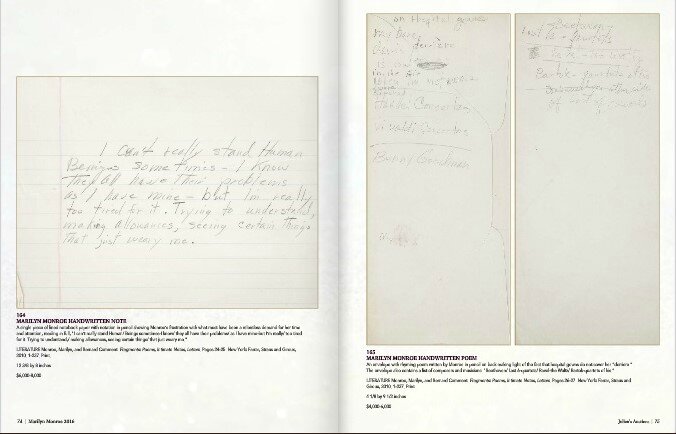 I can't really stand Human
Beings sometimes – I know
They all have their problems
as I have mine – but I'm really
too tired for it. Trying to understand,
making allowances, seeing certain things
That just weary me.
164
MARILYN MONROE HANDWRITTEN NOTE
A single piece of lined notebook paper with notation in pencil showing Monroe's frustration with what must have been a relentless demand for her time
and attention, reading in full, "I can't really stand Human/ Beings sometimes-I know/ they all have their problems/ as I have mine-but I'm really/ too tired
for it. Trying to understand,/ making allowances, seeing certain things/ that just weary me."
LITERATURE Monroe, Marilyn, and Bernard Comment. Fragments: Poems, Intimate Notes, Letters. Pages 24-25. New York: Farrar, Straus and Giroux,
2010. 1-237. Print.
12 3/8 by 8 inches
$6,000-8,000
74 | Marilyn Monroe 2016
on Hospital gowns
My Bare
Derriere
is out
in the air
Handel Concertos
Vivaldi Concertos
Benny Goodman
Beethoven
Last 6 – quartets
Bartok – quartets
165
MARILYN MONROE HANDWRITTEN POEM
An envelope with rhyming poem written by Monroe in pencil on back making light of the fact that hospital gowns do not cover her "derriere."
The envelope also contains a list of composers and musicians.
LITERATURE Monroe, Marilyn, and Bernard Comment. Fragments: Poems, Intimate Notes, Letters. Pages 26-27. New York: Farrar, Straus and
Giroux, 2010. 1-237. Print.
4 1/8 by 9 1/2 inches
$4,000-6,000
Julien's Auctions | 75